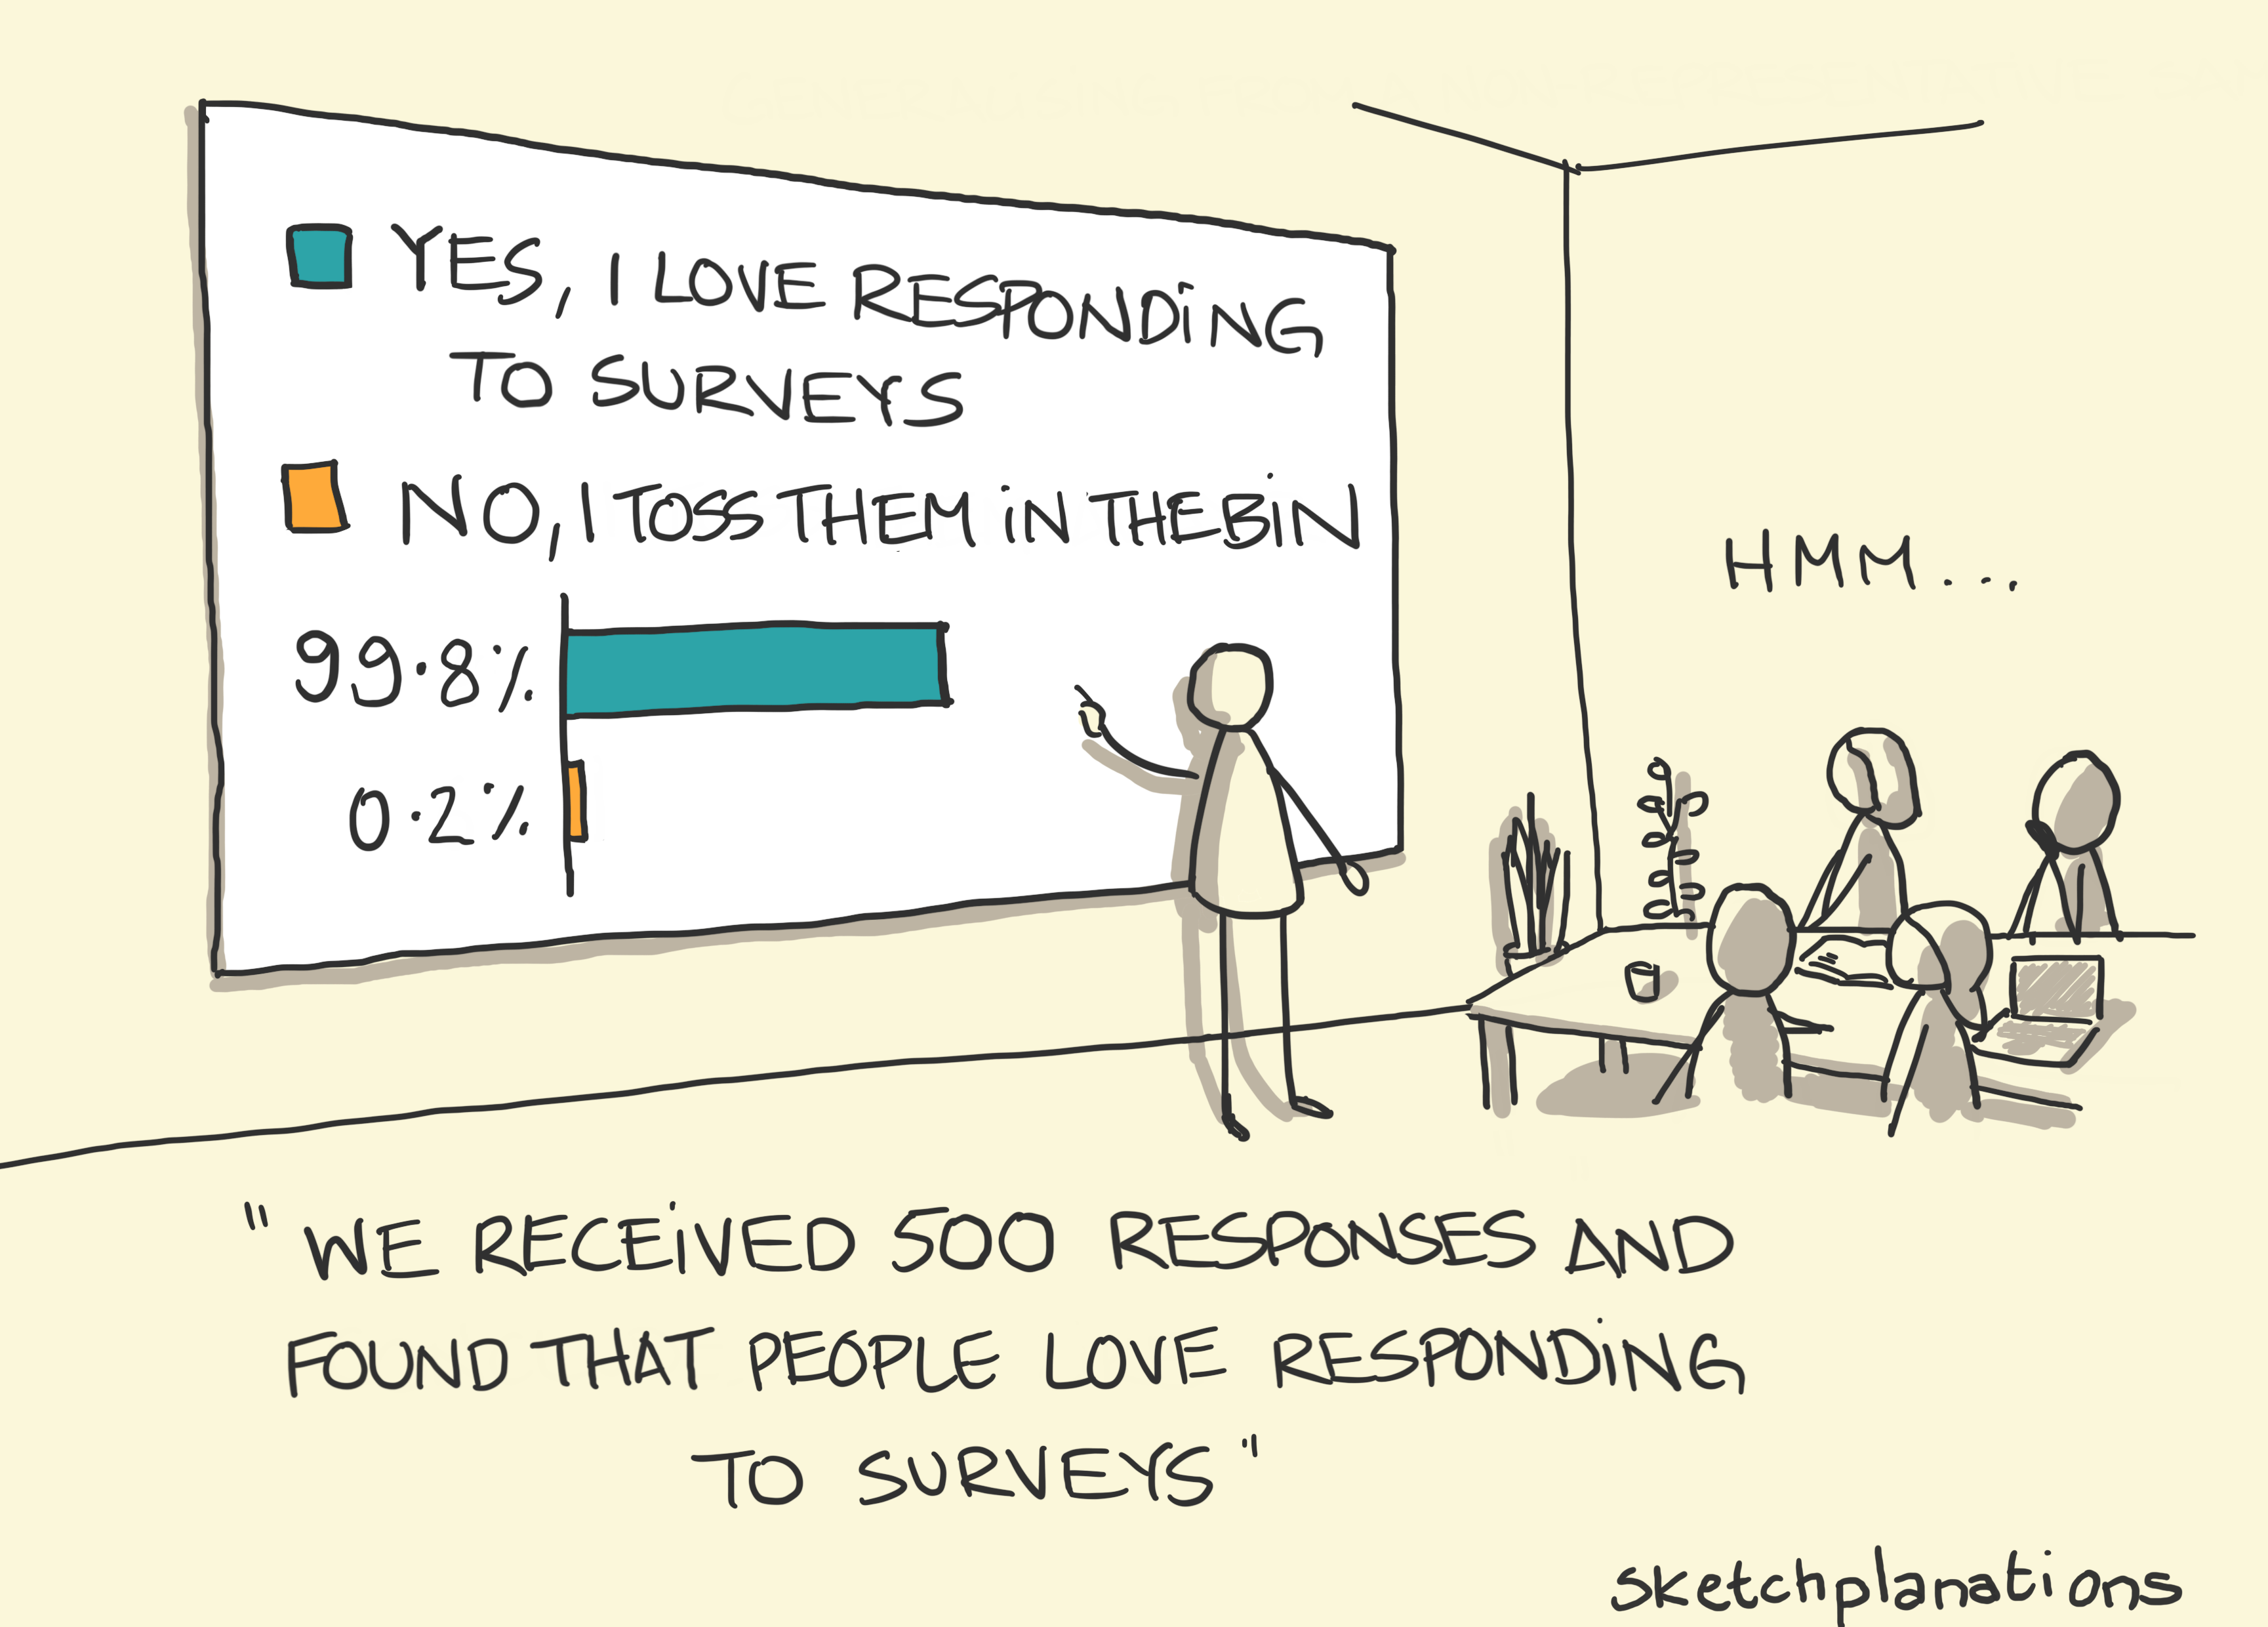 YES, I LOVE RESPONDING
TO SURVEYS
NO, I TOSS THEM IN THE BIN
99.8%
0.2%
HMM...
"WE RECEIVED 500 RESPONSES AND
FOUND THAT PEOPLE LOVE RESPONDING
TO SURVEYS"
sketchplanations